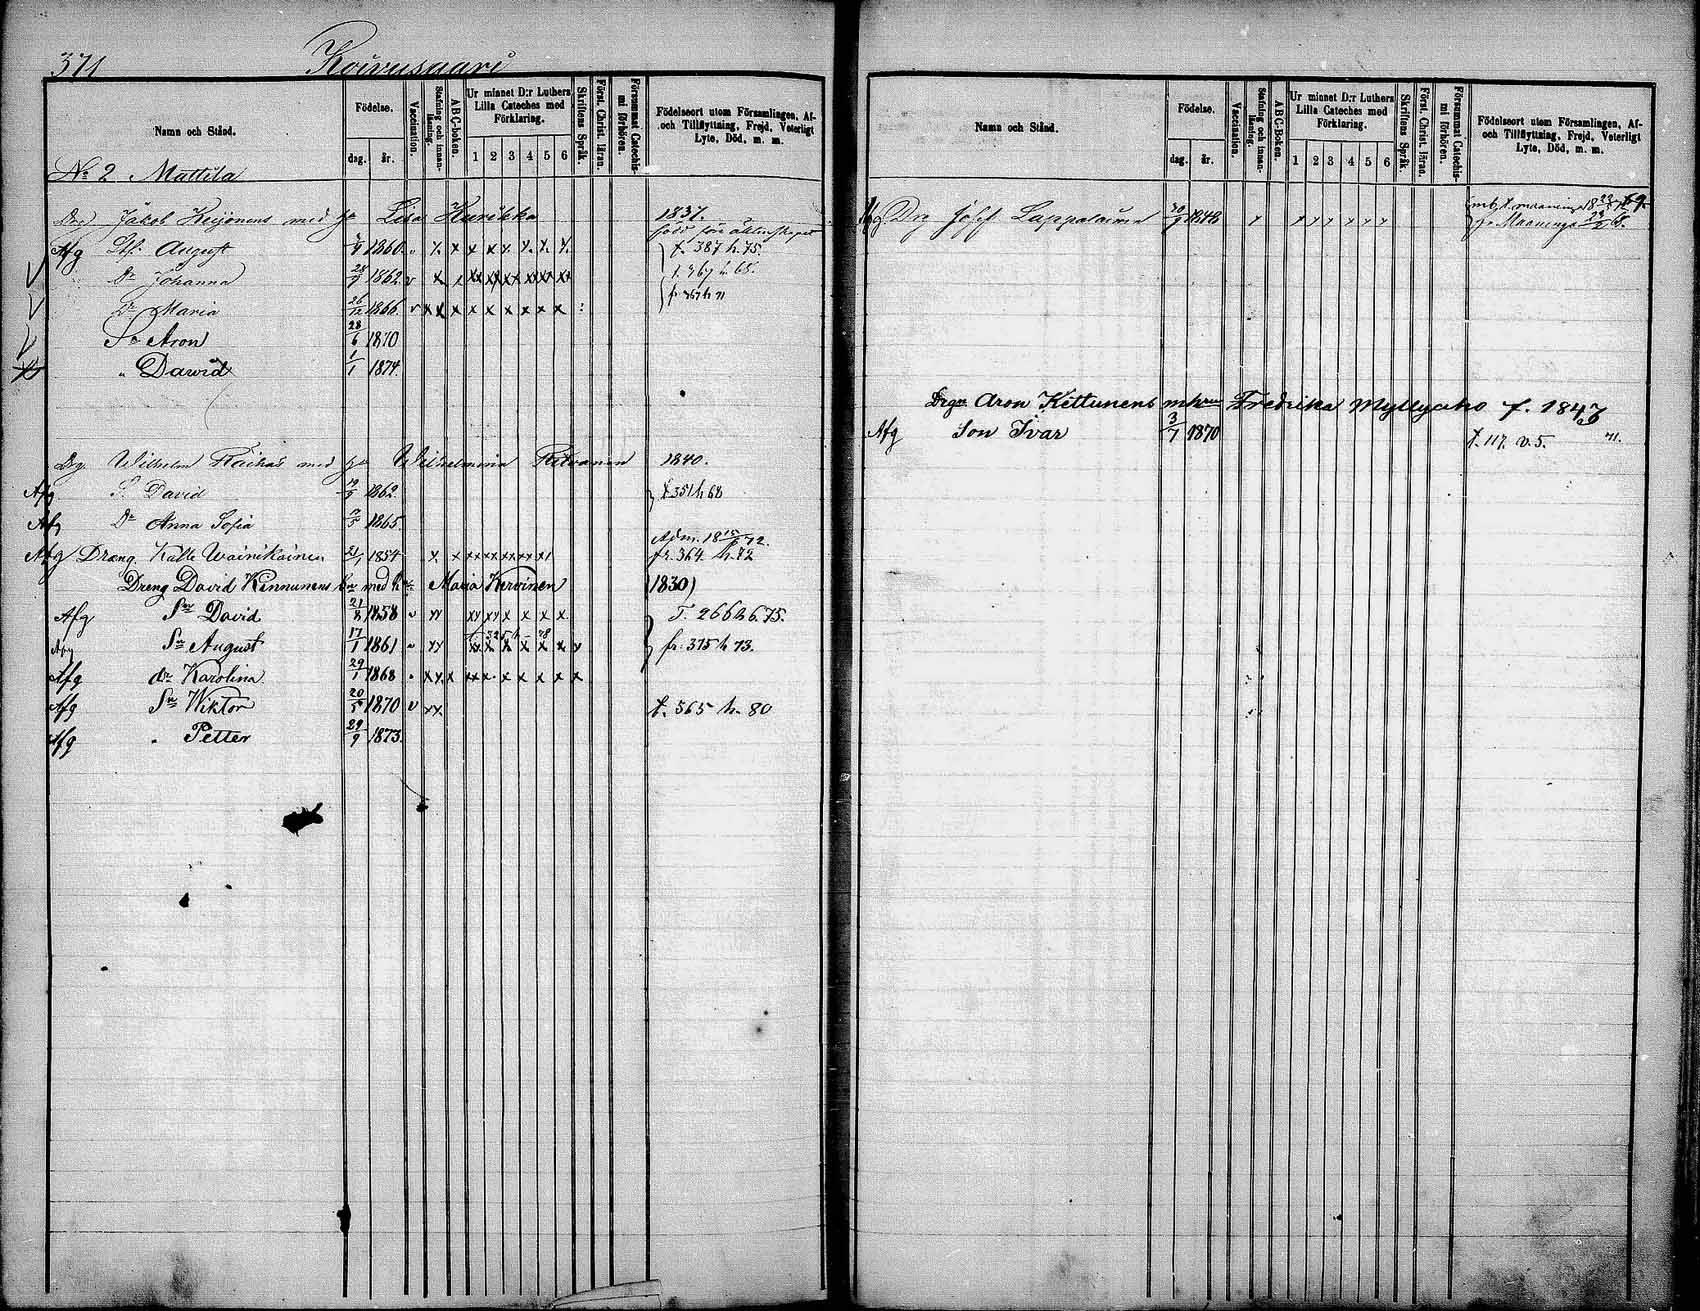 371 Koivusaari
Namn och Stånd.
Födelse.
dag. år.
Vaccination.
Stafning och innanläsning.
ABC-boken.
Ur minnet D:r Luthers Lilla Cateches med Förklaring.
1 2 3 4 5 6
Skriftens Språk.
Först. Christ. läran.
Försummat Catechismi förhören.
Födelseort utom Församlingen, Af- och Tillflyttning, Frejd, Veterligt Lyte, Död, m. m.
No 2 Mattila
Drg Jakob Keijonens med Lisa Kurikka 1837.
född före äktenskapet
Afg August 1860 t. 387 h. 75.
Dr Johanna 1862 v
Dr Maria 26/12 1866 v fr 367 h 71
Sn Aron 28/6 1870
" Dawid 1/1 1874.
Drg Wilhelm med Wilhelmina 1840.
Afg S. David 1862 t 351 h 68
Afg Dr Anna Sofia 1865
18 72.
Afg Dreng Kalle Wainikainen 21/1 1854 fr. 364 h. 72
Dreng David Kinnunens med Maria Kervinen 1830)
Afg Sn David 1858 T. 266 h 6. 75.
t 325 h - 78
Afg Sn August 17/1 1861 fr. 375 h 73.
Afg dr Karolina 29/1 1868
Afg Sn Wiktor 20/5 1870 v t. 565 h. 80
Afg " Petter 29/9 1873.
Namn och Stånd.
Födelse.
dag. år.
Vaccination.
Stafning och innanläsning.
ABC-Boken.
Ur minnet D:r Luthers Lilla Cateches med Förklaring.
1 2 3 4 5 6
Skriftens Språk.
Först. Christ. läran.
Försummat Catechismi förhören.
Födelseort utom Församlingen, Af- och Tillflyttning, Frejd, Veterligt Lyte, Död, m. m.
mb t. maaninga
Afg Drg Josef Lappalainen 1848 fr Maaninga
Drgn Aron Kettunens Fredrika Myllyaho f. 1843
Afg Son Ivar 3/7 1870 t. 117. v. 5. 71.